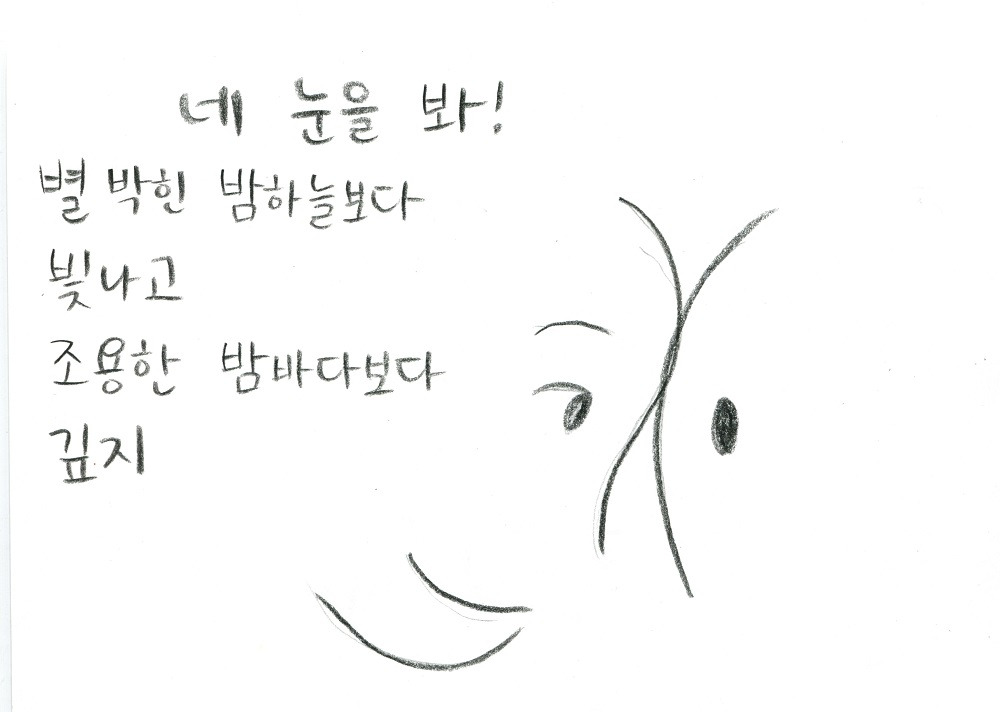 네 눈을 봐!
별 박힌 밤하늘보다
빛나고
조용한 밤바다보다
깊지